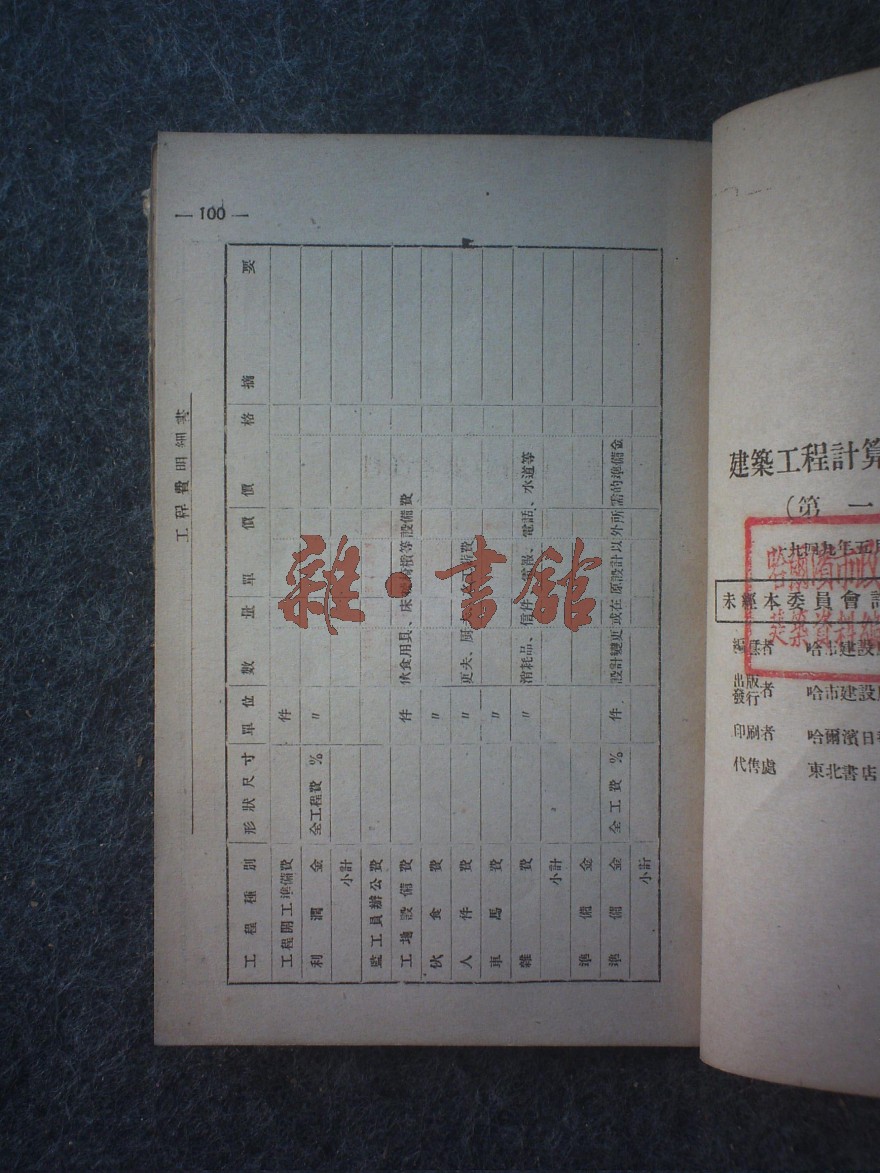 — 100 —
工程費明細書
工程種別 形狀尺寸 單位 數量 單價 價格 摘要
工程開工準備費 件
利潤金 全工程費 % 〃
小計
監工員辦公費
工地設備費 件 伙食用具、床 椅檯等設備費
伙食費 〃
人件費 〃 更夫、厨
車馬費 〃
雜費 〃 消耗品、信件、電報、電話、水道等
小計
準備金
準備金 全工費 % 件 設計變更或在原設計以外所需的準備金
小計
雜·書館
建築工程計算
(第一
一九四九年五月
未經本委員會許
編輯者 哈市建設
出版發行者 哈市建設
印刷者 哈爾濱日報
代售處 東北書店
哈爾濱市政
建築資料編